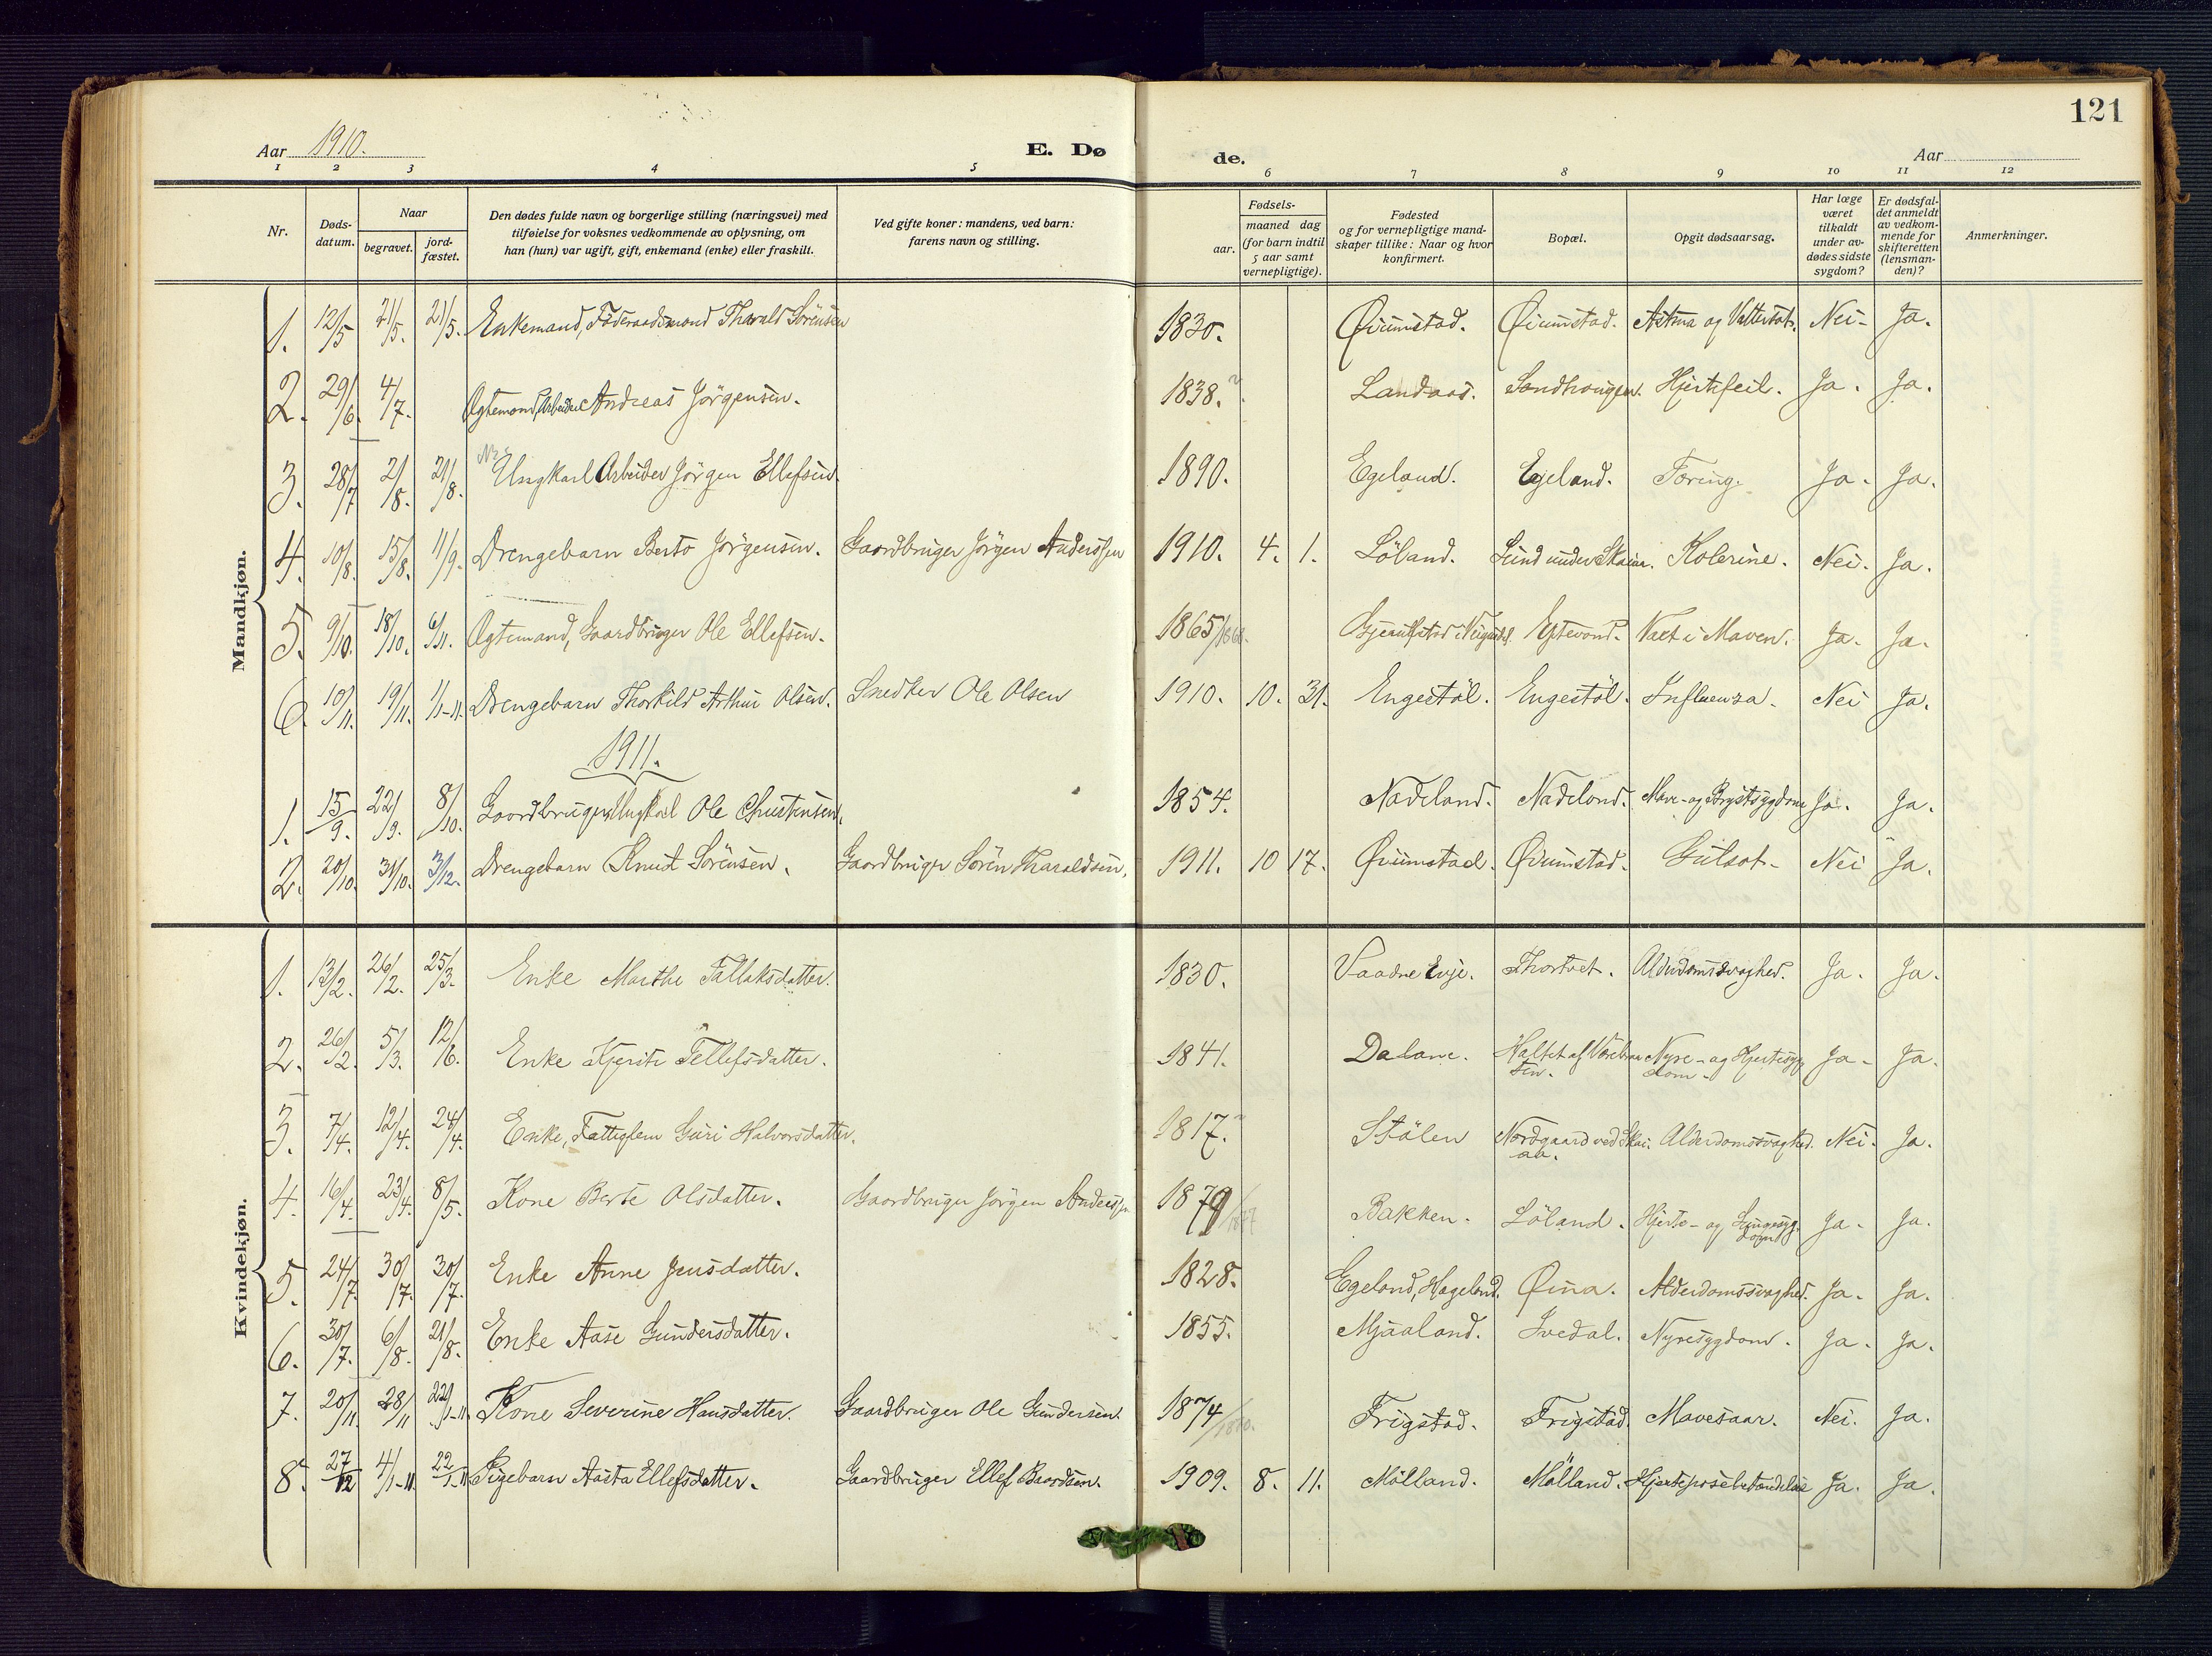 121
Aar 1910.
E. Dø de.
Aar
1 2 3 4 5 6 7 8 9 10 11 12
Nr.
Døds-
datum.
Naar
begravet.
jord-
fæstet.
Den dødes fulde navn og borgerlige stilling (næringsvei) med
tilføielse for voksnes vedkommende av oplysning, om
han (hun) var ugift, gift, enkemand (enke) eller fraskilt.
Ved gifte koner: mandens, ved barn:
farens navn og stilling.
Fødsels-
aar.
maaned dag
(for barn indtil
5 aar samt
vernepligtige).
Fødested
og for vernepligtige mand-
skaper tillike: Naar og hvor
konfirmert.
Bopæl.
Opgit dødsaarsag.
Har læge
været
tilkaldt
under av-
dødes sidste
sygdom?
Er dødsfal-
det anmeldt
av vedkom-
mende for
skifteretten
(lensman-
den)?
Anmerkninger.
Mandkjøn.
1. 12/5 21/5. 21/5. Enkemand, Føderaadsmand Tharald Sörensen 1830. Øiumstad. Øiumstad. Astma og Vattersot. Nei- Ja.
2. 29/6. 4/7. Ægtemand, Arbeider Andreas Jörgensen. 1838.? Landaas. Sandhougen. Hjertefeil. Ja. Ja.
3. 28/7 2/8. 21/8. Ungkarl Arbeider Jörgen Ellefsen. 1890. Egeland. Egeland. Tæring. Ja. Ja.
4. 10/8. 15/8. 11/9. Drengebarn Berto Jörgensen. Gaardbruger Jörgen Anderssen 1910. 4. 1. Löland. Lund under Skaiaa. Kolerine. Nei. Ja.
5. 9/10. 18/10. 6/11. Ægtemand, Gaardbruger Ole Ellefsen. 1865/1866. Eptevand. Væt i Maven. Ja. Ja.
6. 10/11. 19/11. 1/1-11. Drengebarn Thorkild Arthur Olsen. Snedker Ole Olsen 1910. 10. 31. Engestöl. Engestöl. Influenza. Nei Ja.
1911.
1. 15/9. 22/9. 8/10. Gaardbruger, Ungkarl Ole Christensen. 1854. Nadeland. Nadeland. Mave- og Brystsygdom Ja. Ja.
2. 20/10. 31/10. 3/12. Drengebarn Knut Sörensen. Gaardbruger Sören Tharaldsen. 1911. 10 17. Øvumstad. Øvumstad. Gulsot. Nei Ja.
Kvindekjøn.
1. 13/2. 26/2. 25/3. Enke Marthe Tallaksdatter. 1830. Vaadne Evje. Thortvet. Alderdomssvaghed. Ja. Ja.
2. 26/2. 5/3. 12/6. Enke Kjerste Tellefsdatter. 1841. Dalane. Nyre- og Hjertesyg-
dom. Ja. Ja.
3. 7/4. 12/4. 24/4. Enke, Fattiglem Guri Halvorsdatter. 1817.? Stölen Nordgaard ved Skai-
aa. Alderdomssvaghed. Nei. Ja.
4. 16/4. 23/4. 8/5. Kone Berte Olsdatter. Gaardbruger Jörgen Anderssen 1879/1877 Bakken. Löland. Hjerte- og Lungesyg-
dom Ja. Ja.
5. 24/7. 30/7. 30/7. Enke Anne Jensdatter. 1828. Egeland, Hægeland. Øina. Alderdomssvaghed. Ja. Ja.
6. 30/7. 6/8. 21/8. Enke Aase Gundersdatter. 1855. Mjaaland. Ivedal. Nyresygdom. Ja. Ja.
7. 20/11. 28/11 22/1-11. Kone Severine Hansdatter. Gaardbruger Ole Gundersen. 1874/1870. Frigstad. Frigstad. Mavesaar. Nei. Ja.
8. 27/12 4/1-11. 22/1-11 Pigebarn Aasta Ellefsdatter. Gaardbruger Ellef Baardsen. 1909. 8. 11. Mölland. Mölland. Hjerteposebetændelse Ja. Ja.